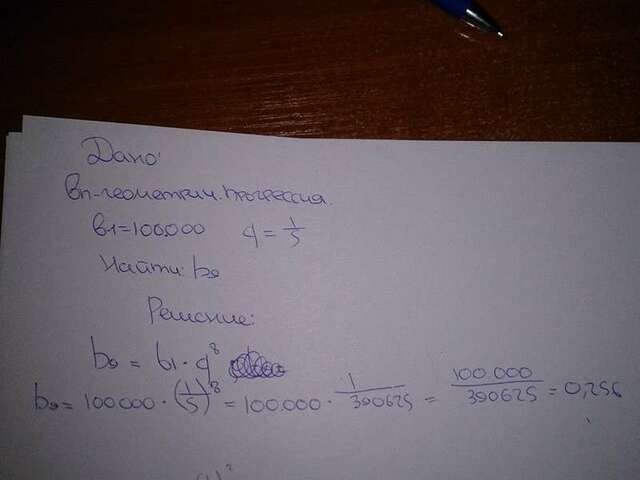 Дано:
bn-геометрич. прогрессия.
b1=100.000 q = 1/5
Найти: b9
Решение:
b9 = b1 · q⁸
b9 = 100.000 · (1/5)⁸ = 100.000 · 1/390625 = 100.000/390625 = 0,256